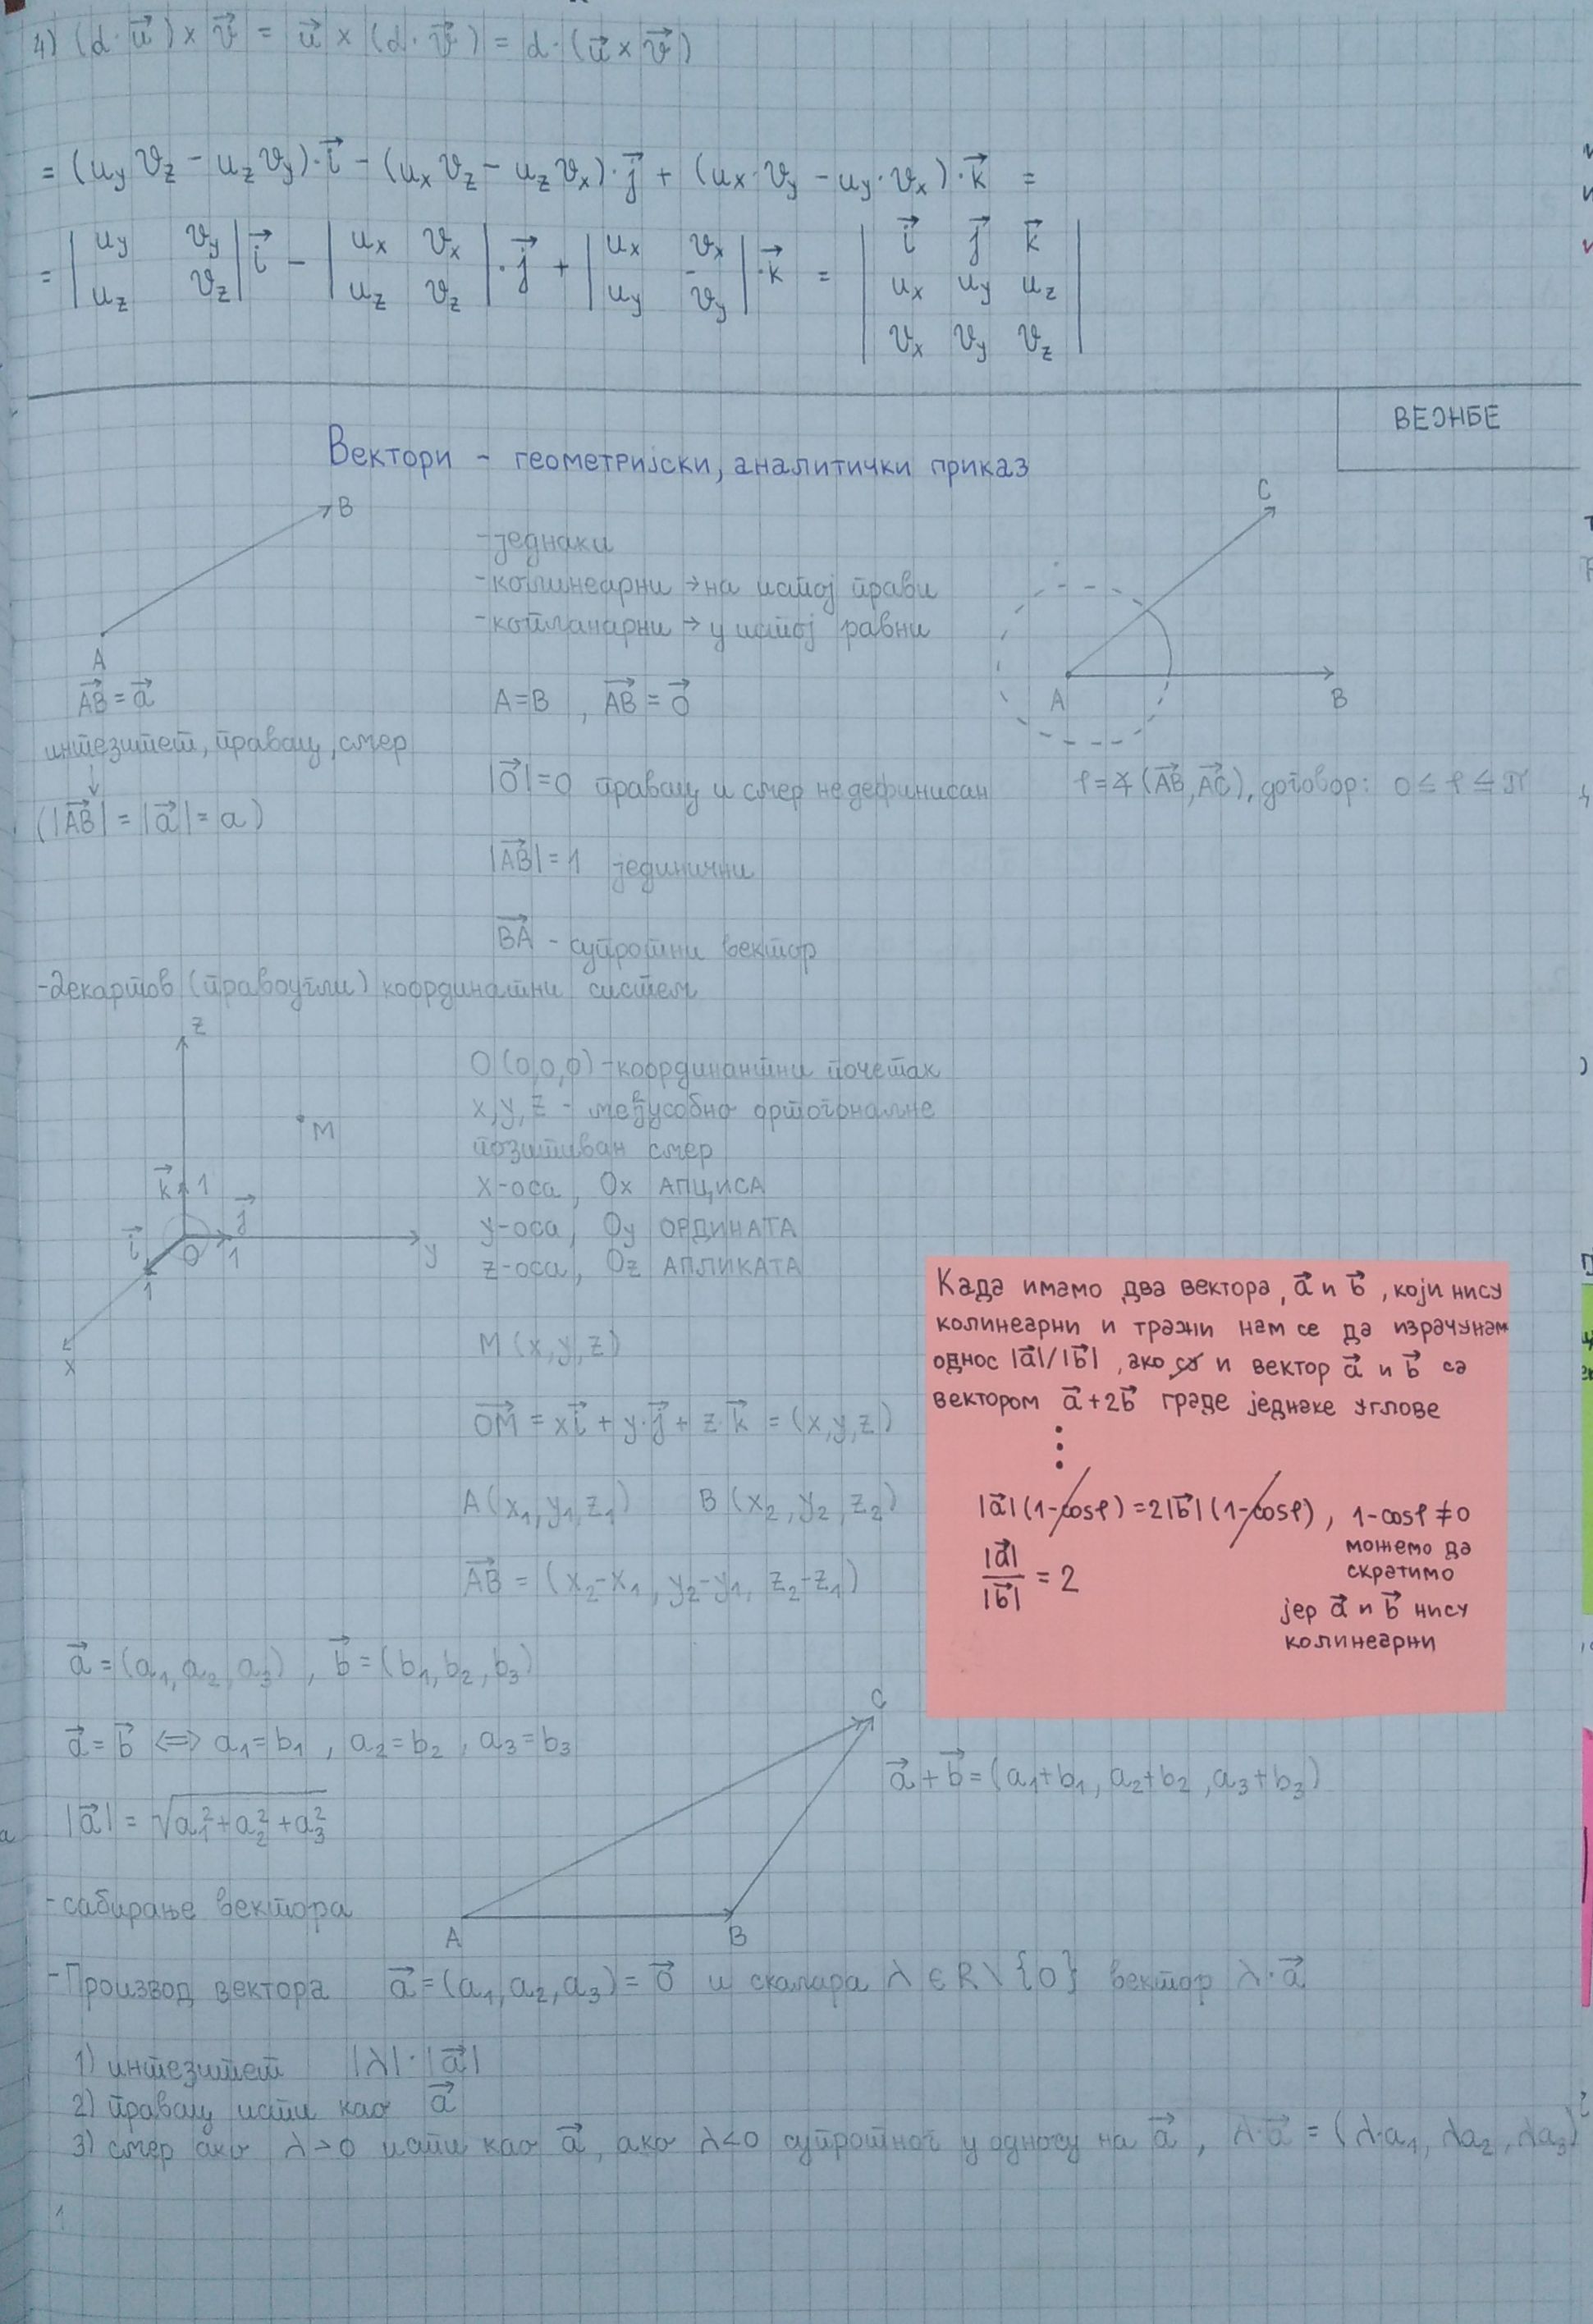 4) (α·u⃗)×v⃗ = u⃗×(α·v⃗) = α·(u⃗×v⃗)
= (u_y v_z − u_z v_y)·i⃗ − (u_x v_z − u_z v_x)·j⃗ + (u_x·v_y − u_y·v_x)·k⃗ =
= |u_y v_y; u_z v_z| i⃗ − |u_x v_x; u_z v_z|·j⃗ + |u_x v_x; u_y v_y|·k⃗ = |i⃗ j⃗ k⃗; u_x u_y u_z; v_x v_y v_z|
ВЕЖБЕ
Вектори - геометријски, аналитички приказ
A B
AB⃗ = a⃗
интезитет, правац, смер
↓
(|AB⃗| = |a⃗| = a)
-једнаки
-колинеарни → на истој прави
-копланарни → у истој равни
A=B , AB⃗ = 0⃗
|0⃗|=0 правац и смер недефинисан
|AB⃗|=1 јединични
BA⃗ - супротни вектор
C
A B
φ=∡(AB⃗,AC⃗), договор: 0 ≤ φ ≤ π
-Декартов (правоугли) координатни систем
z
M
k⃗ 1
j⃗
i⃗ O 1 y
1
x
O (0,0,0) -координантни почетак
x,y,z - међусобно ортогоналне
позитиван смер
x-оса, Ox АПЦИСА
y-оса, Oy ОРДИНАТА
z-оса, Oz АПЛИКАТА
M (x,y,z)
OM⃗ = xi⃗ + y·j⃗ + z·k⃗ = (x,y,z)
A(x₁,y₁,z₁) B(x₂,y₂,z₂)
AB⃗ = (x₂-x₁, y₂-y₁, z₂-z₁)
Када имамо два вектора, a⃗ и b⃗, који нису
колинеарни и тражи нам се да израчунам
однос |a⃗|/|b⃗|, ако и вектор a⃗ и b⃗ са
вектором a⃗+2b⃗ граде једнаке углове
⋮
|a⃗|(1-cosφ)=2|b⃗|(1-cosφ), 1-cosφ≠0
можемо да
скратимо
јер a⃗ и b⃗ нису
колинеарни
|a⃗|/|b⃗| = 2
a⃗=(a₁,a₂,a₃), b⃗=(b₁,b₂,b₃)
a⃗=b⃗ ⟺ a₁=b₁, a₂=b₂, a₃=b₃
|a⃗| = √(a₁²+a₂²+a₃²)
-сабирање вектора
A B C
a⃗+b⃗=(a₁+b₁, a₂+b₂, a₃+b₃)
-Производ вектора a⃗=(a₁,a₂,a₃)=0⃗ и скалара λ∈R\{0} вектор λ·a⃗
1) интезитет |λ|·|a⃗|
2) правац исти као a⃗
3) смер ако λ>0 исти као a⃗, ако λ<0 супротног у односу на a⃗, λ·a⃗ = (λ·a₁, λa₂, λa₃)